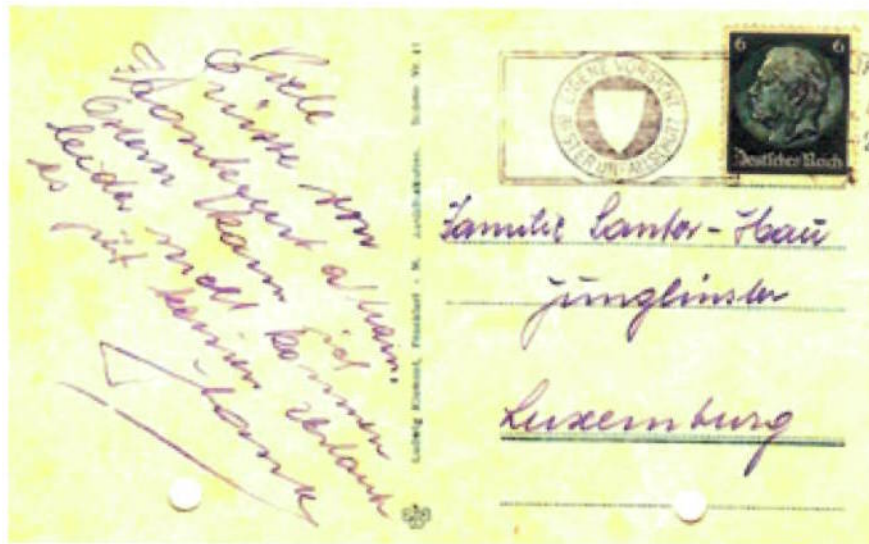 Viele
Grüsse vom
Frankfurt a/Main
Ostern kann ich
leider nicht kommen
es gibt keinen Urlaub
Ludwig Klement, Frankfurt - M.
EIGENE VORSICHT
BESTER UNFALLSCHUTZ
6 6
Deutsches Reich
Familie Santer-Hau
Junglinster
Luxemburg